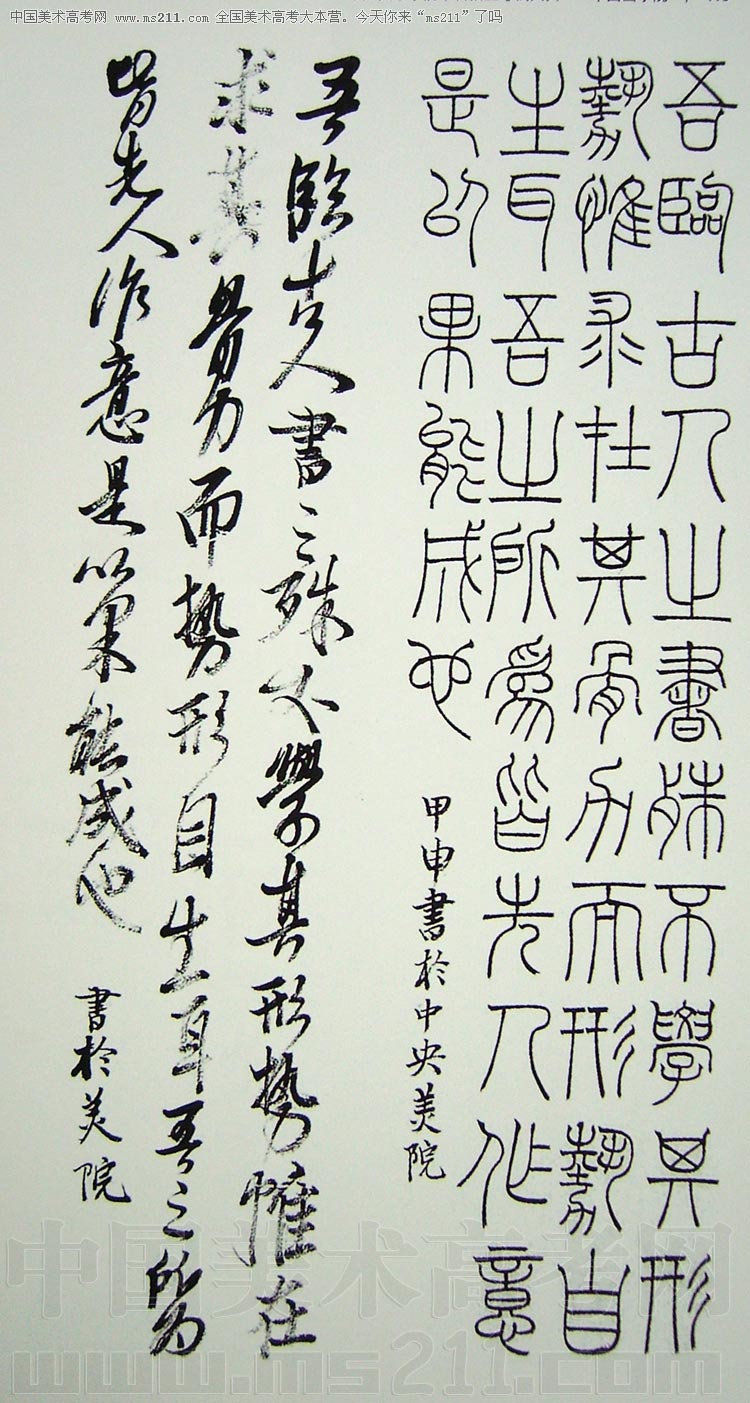 中国美术高考网 www.ms211.com 全国美术高考大本营。今天你来“ms211”了吗
吾臨古人之書殊不學其形
勢惟求在其骨力而形勢自
生耳吾之所為皆先人作意
是以果能成也
甲申書於中央美院
吾臨古人書之殊不學其形勢惟在
求其骨力而勢形自生耳吾之所為
皆先人作意是以果能成也
書於美院
中国美术高考网
www.ms211.com